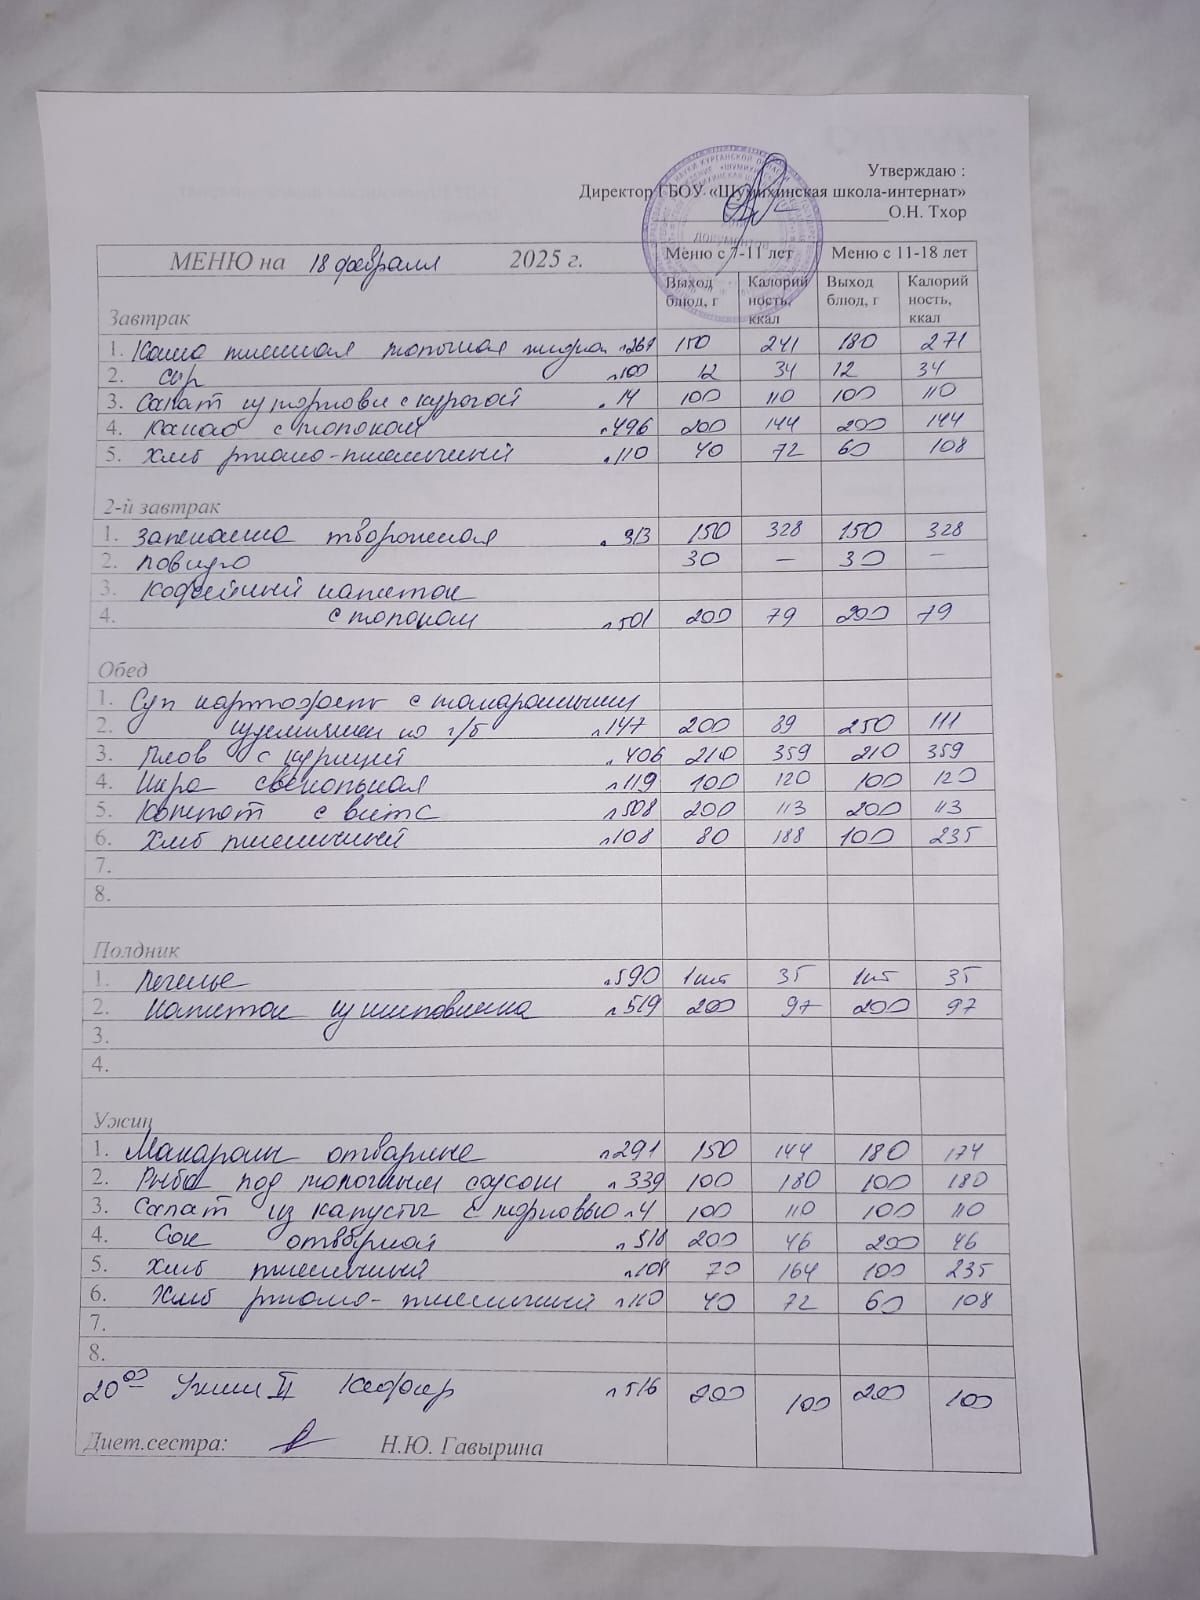 Утверждаю :
Директор ГБОУ «Шумихинская школа-интернат»
О.Н. Тхор
МЕНЮ на 18 февраля 2025 г. Меню с 7-11 лет Меню с 11-18 лет
Завтрак Выход блюд, г Калорийность, ккал Выход блюд, г Калорийность, ккал
1. Каша пшенная молочная жидкая 150 241 180 271
2. Сыр л100 12 34 12 34
3. Салат из моркови с курагой 14 100 110 100 110
4. Какао с молоком л496 200 144 200 144
5. Хлеб ржано-пшеничный 110 40 72 60 108
2-й завтрак
1. Запеканка творожная 313 150 328 150 328
2. повидло 30 – 30 –
3. Кофейный напиток
4. с молоком л501 200 79 200 79
Обед
1. Суп картофель с макаронными
2. изделиями на к/б л147 200 89 250 111
3. Плов с курицей 406 210 359 210 359
4. Икра свекольная л119 100 120 100 120
5. Компот с вит С л508 200 113 200 113
6. Хлеб пшеничный л108 80 188 100 235
7.
8.
Полдник
1. Печенье л590 1шт 35 1шт 35
2. Напиток из шиповника л519 200 97 200 97
3.
4.
Ужин
1. Макароны отварные л291 150 144 180 174
2. Рыба под молочным соусом л339 100 180 100 180
3. Салат из капусты с морковью л4 100 110 100 110
4. Сок л518 200 46 200 46
5. Хлеб пшеничный л108 70 164 100 235
6. Хлеб ржано-пшеничный л110 40 72 60 108
7.
8.
20⁰⁰ Ужин II Кефир л516 200 100 200 100
Диет.сестра: Н.Ю. Гавырина